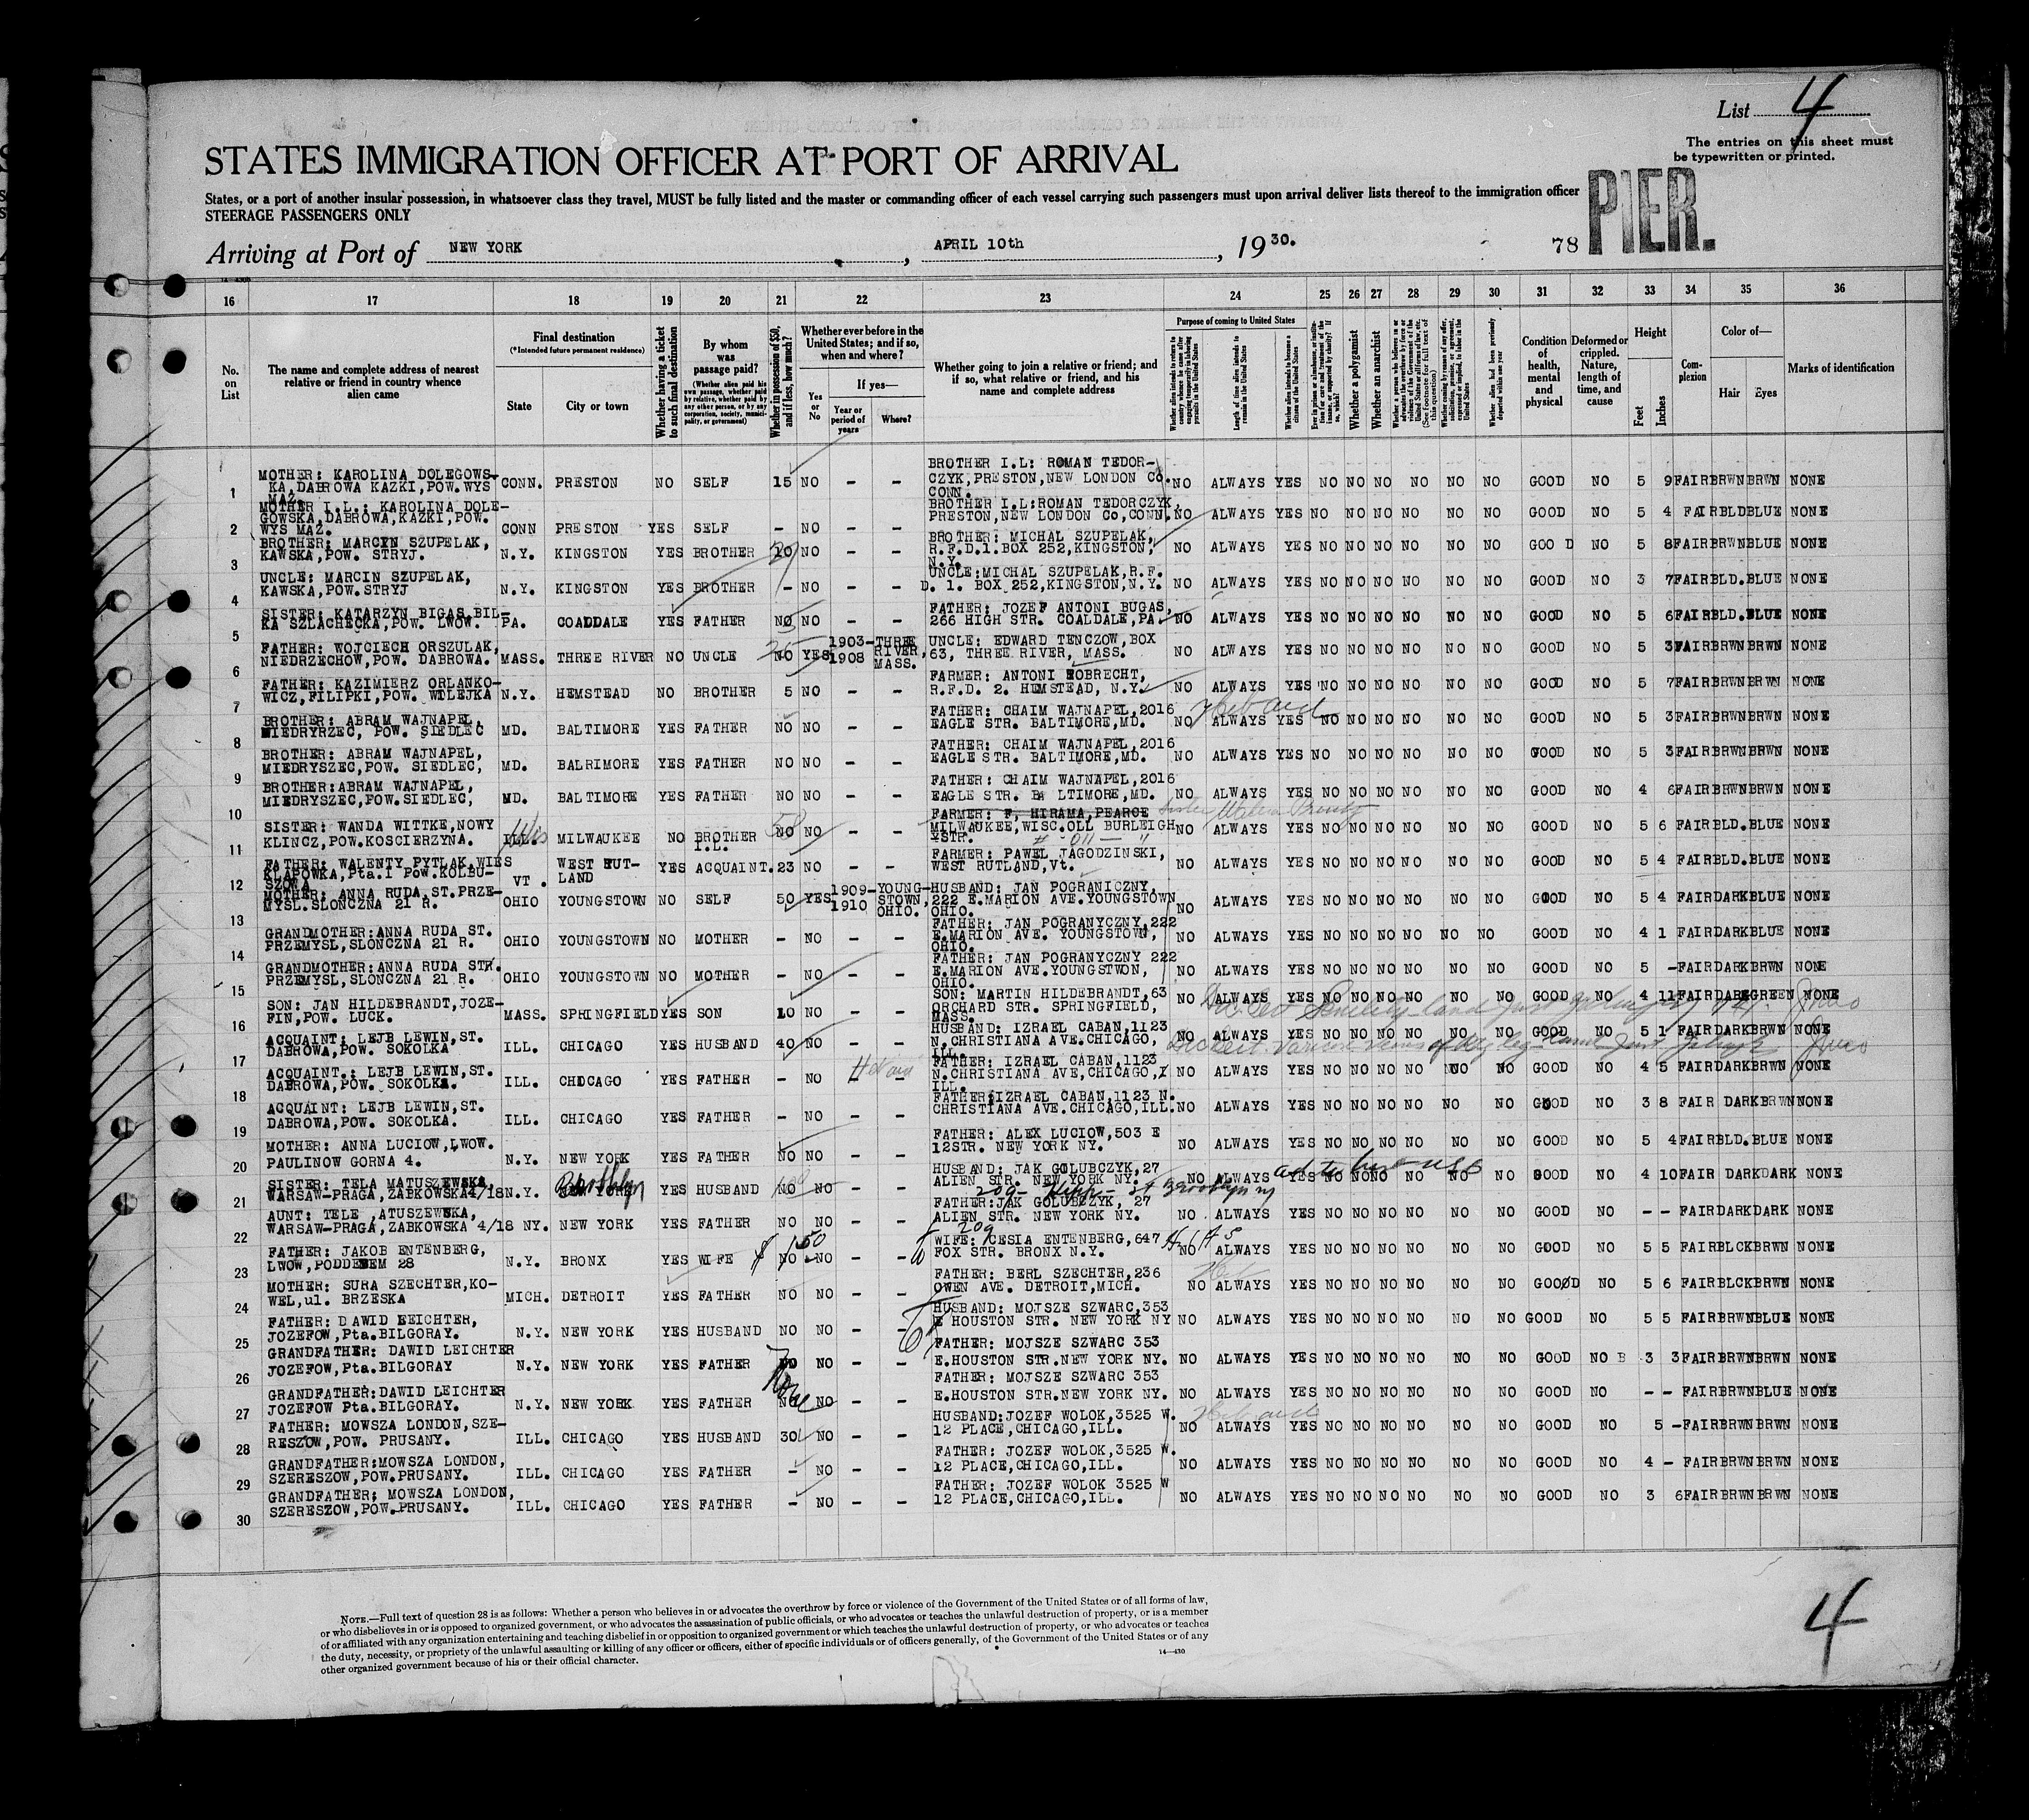 List 4
The entries on this sheet must
be typewritten or printed.
STATES IMMIGRATION OFFICER AT PORT OF ARRIVAL
PIER.
States, or a port of another insular possession, in whatsoever class they travel, MUST be fully listed and the master or commanding officer of each vessel carrying such passengers must upon arrival deliver lists thereof to the immigration officer
STEERAGE PASSENGERS ONLY
Arriving at Port of NEW YORK, APRIL 10th, 1930. 78
16 17 18 19 20 21 22 23 24 25 26 27 28 29 30 31 32 33 34 35 36
No. on List
The name and complete address of nearest relative or friend in country whence alien came
Final destination
(*Intended future permanent residence)
State
City or town
Whether having a ticket to such final destination
By whom was passage paid?
(Whether alien paid his own passage, whether paid by relative, whether paid by any other person, or by any corporation, society, municipality, or government)
Whether in possession of $50, and if less, how much?
Whether ever before in the United States; and if so, when and where?
Yes or No
If yes—
Year or period of years
Where?
Whether going to join a relative or friend; and if so, what relative or friend, and his name and complete address
Purpose of coming to United States
Whether alien intends to return to country whence he came after engaging temporarily in laboring pursuits in the United States
Length of time alien intends to remain in the United States
Whether alien intends to become a citizen of the United States
Whether a polygamist
Whether an anarchist
Condition of health, mental and physical
Deformed or crippled. Nature, length of time, and cause
Height
Feet
Inches
Complexion
Color of—
Hair
Eyes
Marks of identification
1 MOTHER: KAROLINA DOLEGOWS-KA,DABROWA KAZKI,POW.WYS MAZ. CONN. PRESTON NO SELF 15 NO - - BROTHER I.L: ROMAN TEDOR-CZYK,PRESTON,NEW LONDON Co. CONN. NO ALWAYS YES NO NO NO NO NO NO GOOD NO 5 9 FAIR BRWN BRWN NONE
2 MOTHER I.L.: KAROLINA DOLE-GOWSKA,DABROWA,KAZKI,POW. WYS MAZ. CONN PRESTON YES SELF - NO - - BROTHER I.L:ROMAN TEDORCZYK, PRESTON,NEW LONDON Co,CONN. NO ALWAYS YES NO NO NO NO NO NO GOOD NO 5 4 FAIR BLD BLUE NONE
3 BROTHER: MARCYN SZUPELAK, KAWSKA,POW. STRYJ. N.Y. KINGSTON YES BROTHER NO - - BROTHER: MICHAL SZUPELAK, R.F.D.1.BOX 252,KINGSTON, N.Y. NO ALWAYS YES NO NO NO NO NO NO GOO D NO 5 8 FAIR BRWN BLUE NONE
4 UNCLE: MARCIN SZUPELAK, KAWSKA,POW.STRYJ N.Y. KINGSTON YES BROTHER - NO - - UNCLE:MICHAL SZUPELAK,R.F. D. 1. BOX 252,KINGSTON,N.Y. NO ALWAYS YES NO NO NO NO NO NO GOOD NO 3 7 FAIR BLD. BLUE NONE
5 SISTER: KATARZYN BIGAS,BIL-KA SZLACHECKA,POW. LWOW. PA. COALDALE YES FATHER NO NO - - FATHER: JOZEF ANTONI BUGAS, 266 HIGH STR. COALDALE,PA. NO ALWAYS YES NO NO NO NO NO NO GOOD NO 5 6 FAIR BLD. BLUE NONE
6 FATHER: WOJCIECH ORSZULAK, NIEDRZECHOW,POW. DABROWA. MASS. THREE RIVER NO UNCLE NO YES 1903-1908 THREE RIVER, MASS. UNCLE: EDWARD TENCZOW,BOX 63, THREE RIVER, MASS. NO ALWAYS YES NO NO NO NO NO NO GOOD NO 5 3 FAIR BRWN BRWN NONE
7 FATHER: KAZIMIERZ ORLANKO-WICZ,FILIPKI,POW. WILEJKA N.Y. HEMSTEAD NO BROTHER 5 NO - - FARMER: ANTONI ROBRECHT, R.F.D. 2. HEMSTEAD, N.Y. NO ALWAYS YES NO NO NO NO NO NO GOOD NO 5 7 FAIR BRWN BRWN NONE
8 BROTHER: ABRAM WAJNAPEL, MIEDRYRZEC, POW. SIEDLEC MD. BALTIMORE YES FATHER NO NO - - FATHER: CHAIM WAJNAPEL,2016 EAGLE STR. BALTIMORE,MD. NO ALWAYS YES NO NO NO NO NO NO GOOD NO 5 3 FAIR BRWN BRWN NONE
9 BROTHER: ABRAM WAJNAPEL, MIEDRYSZEC,POW. SIEDLEC, MD. BALRIMORE YES FATHER NO NO - - FATHER: CHAIM WAJNAPEL,2016 EAGLE STR. BALTIMORE,MD. NO ALWAYS YES NO NO NO NO NO NO GOOD NO 5 3 FAIR BRWN BRWN NONE
10 BROTHER:ABRAM WAJNAPEL, MIEDRYSZEC,POW.SIEDLEC, MD. BALTIMORE YES FATHER NO NO - - FATHER: CHAIM WAJNAPEL,2016 EAGLE STR. BA LTIMORE,MD. NO ALWAYS YES NO NO NO NO NO NO GOOD NO 4 6 FAIR BRWN BRWN NONE
11 SISTER: WANDA WITTKE,NOWY KLINCZ,POW.KOSCIERZYNA. Wis MILWAUKEE NO BROTHER I.L. 50 NO NO - - FARMER: F, HIRAMA,PEARCE MILWAUKEE,WISC.OLL BURLEIGH STR. NO ALWAYS YES NO NO NO NO NO NO GOOD NO 5 6 FAIR BLD. BLUE NONE
12 FATHER: WALENTY PYTLAK,WIES KLAPOWKA,Pta.I POW.KOLBU-SZOWA VT. WEST RUT-LAND YES ACQUAINT. 23 NO - - FARMER: PAWEL JAGODZINSKI, WEST RUTLAND,Vt. NO ALWAYS YES NO NO NO NO NO NO GOOD NO 5 4 FAIR BLD. BLUE NONE
13 MOTHER: ANNA RUDA,ST.PRZE-MYSL.SLONCZNA 21 R. OHIO YOUNGSTOWN NO SELF 50 YES 1909-1910 YOUNG-STOWN, OHIO. HUSBAND: JAN POGRANICZNY, 222 E.MARION AVE.YOUNGSTOWN OHIO. NO ALWAYS YES NO NO NO NO NO NO GOOD NO 5 4 FAIR DARK BLUE NONE
14 GRANDMOTHER:ANNA RUDA ST. PRZEMYSL,SLONCZNA 21 R. OHIO YOUNGSTOWN NO MOTHER - NO - - FATHER: JAN POGRANYCZNY,222 E.MARION AVE. YOUNGSTOWN, OHIO. NO ALWAYS YES NO NO NO NO NO NO GOOD NO 4 1 FAIR DARK BLUE NONE
15 GRANDMOTHER:ANNA RUDA STR. PRZEMYSL,SLONCZNA 21 R. OHIO YOUNGSTOWN NO MOTHER - NO - - FATHER: JAN POGRANYCZNY 222 E.MARION AVE.YOUNGSTWON, OHIO. NO ALWAYS YES NO NO NO NO NO NO GOOD NO 5 - FAIR DARK BRWN NONE
16 SON: JAN HILDEBRANDT,JOZE-FIN,POW. LUCK. MASS. SPRINGFIELD YES SON 10 NO - - SON: MARTIN HILDEBRANDT,63 ORCHARD STR. SPRINGFIELD, MASS. NO ALWAYS YES NO NO NO NO NO NO GOOD NO 4 11 FAIR DARK GREEN NONE
17 ACQUAINT: LEJB LEWIN,ST. DABROWA,POW. SOKOLKA ILL. CHICAGO YES HUSBAND 40 NO - - HUSBAND: IZRAEL CABAN,1123 N.CHRISTIANA AVE.CHICAGO, ILL. NO ALWAYS YES NO NO NO NO NO NO GOOD NO 5 1 FAIR DARK BRWN NONE
18 ACQUAINT.: LEJB LEWIN,ST. DABROWA,POW. SOKOLKA. ILL. CHICAGO YES FATHER - NO - - FATHER: IZRAEL CABAN,1123 N.CHRISTIANA AVE,CHICAGO, ILL. NO ALWAYS YES NO NO NO NO NO NO GOOD NO 4 5 FAIR DARK BRWN NONE
19 ACQUAINT: LEJB LEWIN,ST. DABROWA,POW. SOKOLKA. ILL. CHICAGO YES FATHER - NO - - FATHER:IZRAEL CABAN,1123 N. CHRISTIANA AVE.CHICAGO,ILL. NO ALWAYS YES NO NO NO NO NO NO GOOD NO 3 8 FAIR DARK BRWN NONE
20 MOTHER: ANNA LUCIOW,LWOW. PAULINOW GORNA 4. N.Y. NEW YORK YES FATHER NO NO - - FATHER: ALEX LUCIOW,503 E 12STR. NEW YORK NY. NO ALWAYS YES NO NO NO NO NO NO GOOD NO 5 4 FAIR BLD. BLUE NONE
21 SISTER: TELA MATUSZEWSKA, WARSAW-PRAGA,ZABKOWSKA4/18 N.Y. Brooklyn YES HUSBAND NO NO - - HUSBAND: JAK GOLUBCZYK,27 ALIEN STR. NEW YORK NY. 209 - St Brooklyn ny NO ALWAYS YES NO NO NO NO NO NO GOOD NO 4 10 FAIR DARK DARK NONE
22 AUNT: TELE ,ATUSZEWSKA, WARSAW-PRAGA,ZABKOWSKA 4/18 NY. NEW YORK YES FATHER NO NO - - FATHER:JAK GOLUBCZYK, 27 ALIEN STR. NEW YORK NY. 209 NO ALWAYS YES NO NO NO NO NO NO GOOD NO - - FAIR DARK DARK NONE
23 FATHER: JAKOB ENTENBERG, LWOW,PODDEBEM 28 N.Y. BRONX YES WIFE $ 150 NO NO - - WIFE: CESIA ENTENBERG,647 FOX STR. BRONX N.Y. NO ALWAYS YES NO NO NO NO NO NO GOOD NO 5 5 FAIR BLCK BRWN NONE
24 MOTHER: SURA SZECHTER,KO-WEL,ul. BRZESKA MICH. DETROIT YES FATHER NO NO - - FATHER: BERL SZECHTER,236 OWEN AVE. DETROIT,MICH. NO ALWAYS YES NO NO NO NO NO NO GOOD NO 5 6 FAIR BLCK BRWN NONE
25 FATHER: DAWID LEICHTER, JOZEFOW,Pta.BILGORAY. N.Y. NEW YORK YES HUSBAND NO NO - - HUSBAND: MOJSZE SZWARC,353 E HOUSTON STR. NEW YORK NY NO ALWAYS YES NO NO NO NO NO NO GOOD NO 5 5 FAIR BRWN BLUE NONE
26 GRANDFATHER: DAWID LEICHTER JOZEFOW,Pta.BILGORAY N.Y. NEW YORK YES FATHER NO NO - - FATHER: MOJSZE SZWARC 353 E.HOUSTON STR.NEW YORK NY. NO ALWAYS YES NO NO NO NO NO NO GOOD NO 3 3 FAIR BRWN BRWN NONE
27 GRANDFATHER:DAWID LEICHTER JOZEFOW Pta.BILGORAY. N.Y. NEW YORK YES FATHER NO NO - - FATHER: MOJSZE SZWARC 353 E.HOUSTON STR.NEW YORK NY. NO ALWAYS YES NO NO NO NO NO NO GOOD NO - - FAIR BRWN BLUE NONE
28 FATHER: MOWSZA LONDON,SZE-RESZOW,POW. PRUSANY. ILL. CHICAGO YES HUSBAND 30 NO - - HUSBAND:JOZEF WOLOK,3525 W. 12 PLACE,CHICAGO,ILL. NO ALWAYS YES NO NO NO NO NO NO GOOD NO 5 - FAIR BRWN BRWN NONE
29 GRANDFATHER:MOWSZA LONDON, SZERESZOW,POW.PRUSANY. ILL. CHICAGO YES FATHER - NO - - FATHER: JOZEF WOLOK,3525 W. 12 PLACE,CHICAGO,ILL. NO ALWAYS YES NO NO NO NO NO NO GOOD NO 4 - FAIR BRWN BRWN NONE
30 GRANDFATHER; MOWSZA LONDON, SZERESZOW,POW.PRUSANY. ILL. CHICAGO YES FATHER - NO - - FATHER: JOZEF WOLOK 3525 W 12 PLACE,CHICAGO,ILL. NO ALWAYS YES NO NO NO NO NO NO GOOD NO 3 6 FAIR BRWN BRWN NONE
NOTE.—Full text of question 28 is as follows: Whether a person who believes in or advocates the overthrow by force or violence of the Government of the United States or of all forms of law,
or who disbelieves in or is opposed to organized government, or who advocates the assassination of public officials, or who advocates or teaches the unlawful destruction of property, or is a member
of or affiliated with any organization entertaining and teaching disbelief in or opposition to organized government or which teaches the unlawful destruction of property, or who advocates or teaches
the duty, necessity, or propriety of the unlawful assaulting or killing of any officer or officers, either of specific individuals or of officers generally, of the Government of the United States or of any
other organized government because of his or their official character.
14—430
4